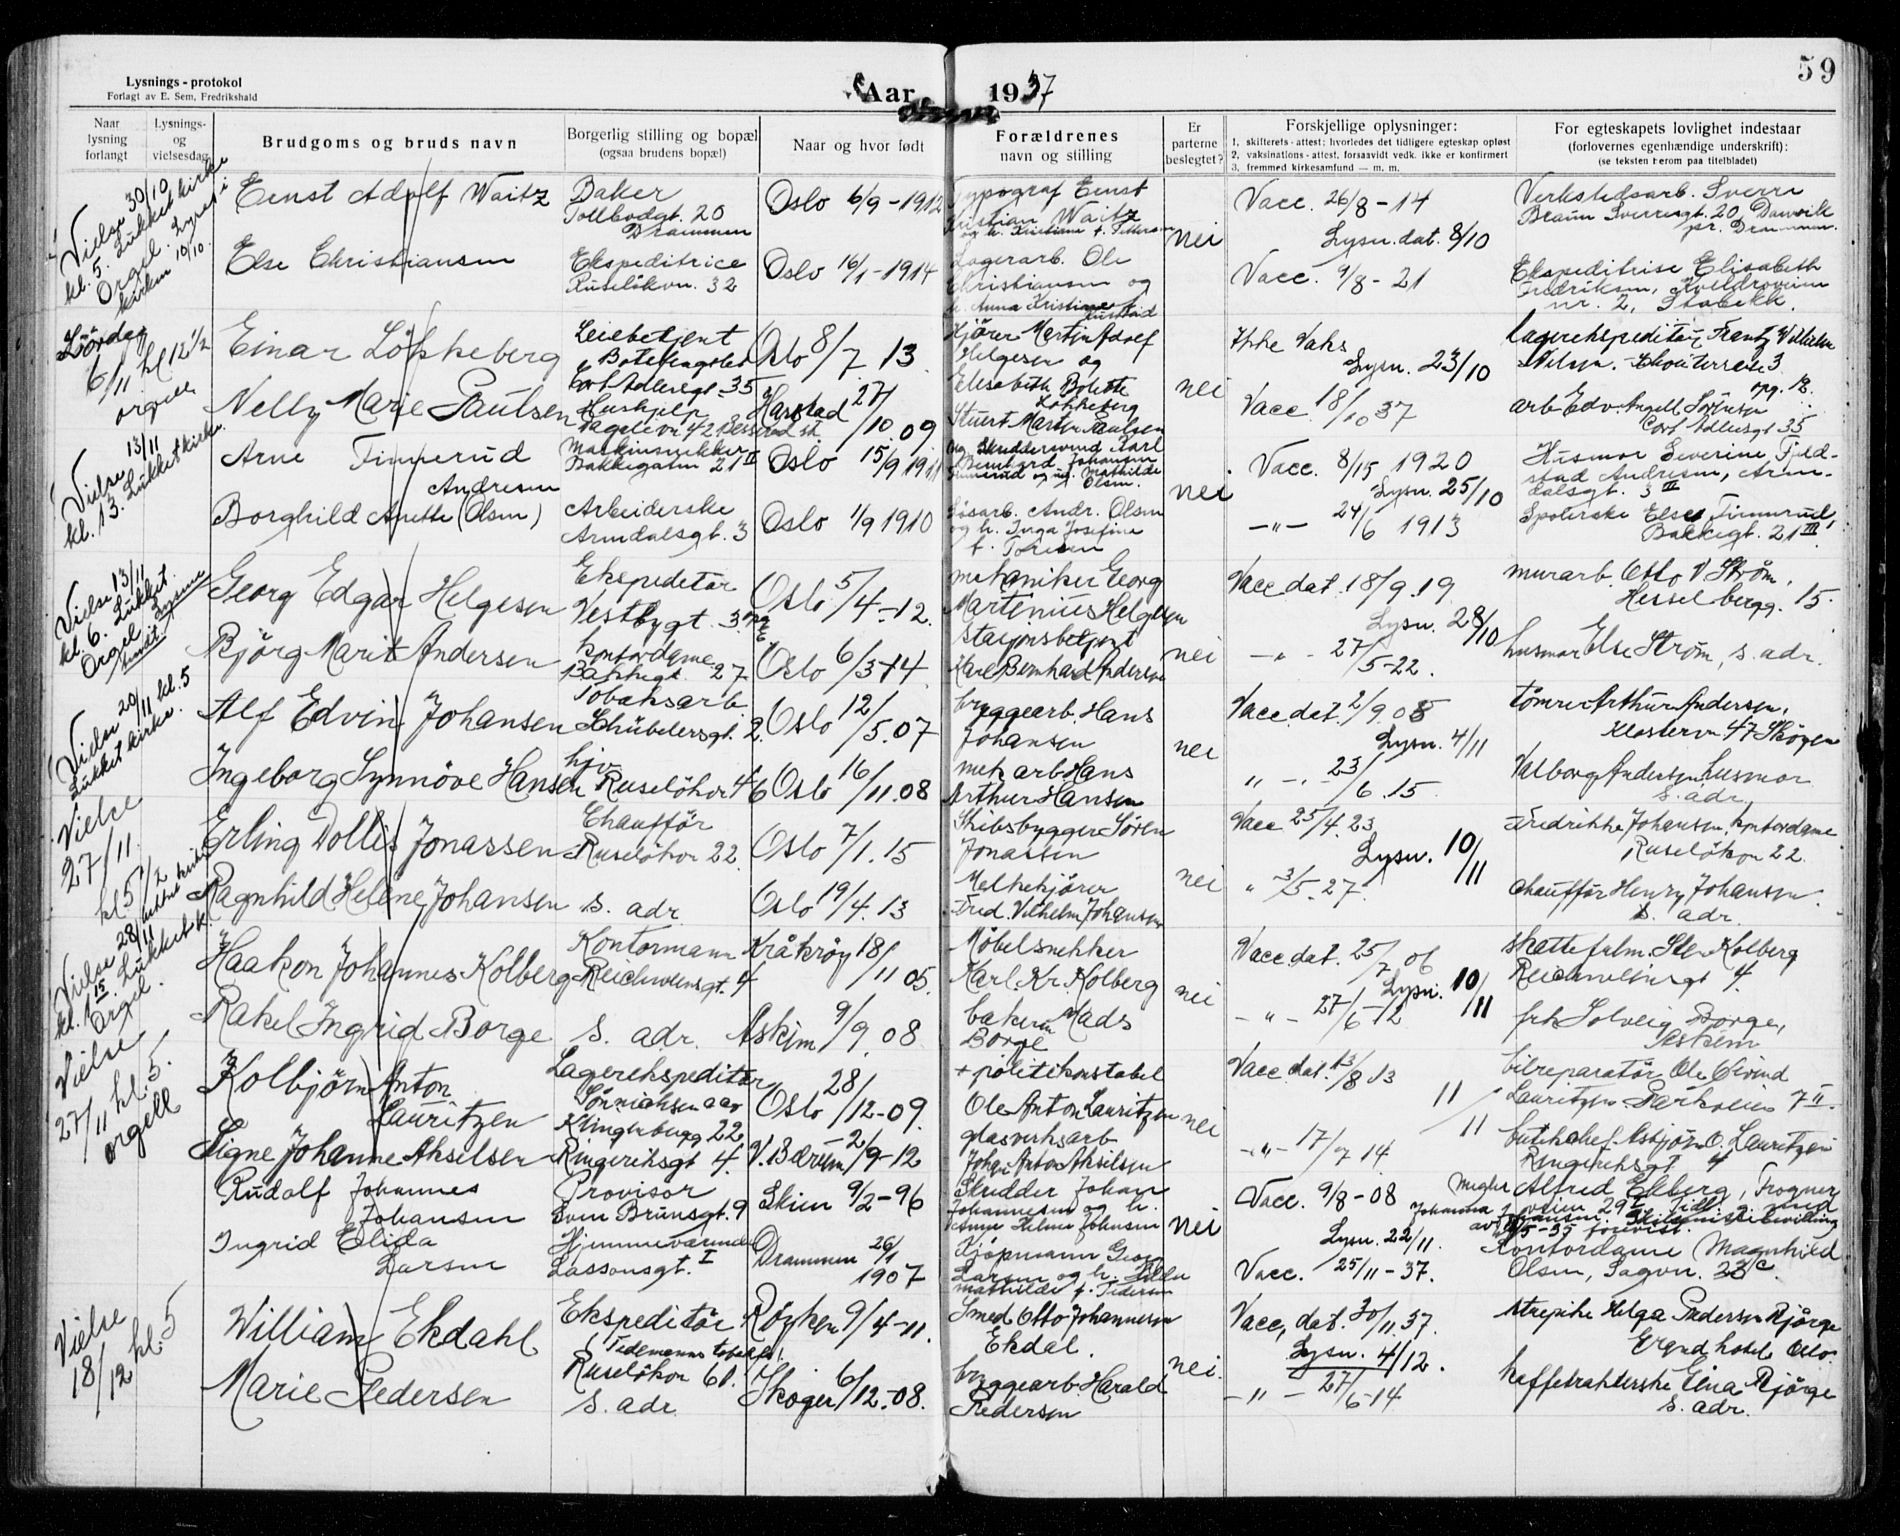 59
Lysnings-protokol
Forlagt av E. Sem, Fredrikshald
Aar 1937
Naar lysning forlangt
Lysnings- og vielsesdag
Brudgoms og bruds navn
Borgerlig stilling og bopæl
(ogsaa brudens bopæl)
Naar og hvor født
Forældrenes navn og stilling
Er parterne beslegtet?
Forskjellige oplysninger:
1. skifterets-attest: hvorledes det tidligere egteskap opløst
2. vaksinations-attest, forsaavidt vedk. ikke er konfirmert
3. fremmed kirkesamfund — m. m.
For egteskapets lovlighet indestaar
(forlovernes egenhændige underskrift):
(se teksten herom paa titelbladet)
Vielse 30/10
kl. 5. Lukket kirke
Orgel.
kirken 10/10.
Ernst Adolf Waitz
Baker
Tollbodgt. 20
Drammen
Oslo 6/9-1912
Typograf Ernst
Kristian Waitz
nei
Vacc. 26/8-14
Lysn. dat. 8/10
Verkstedsarb. Sverre
Braun Sverresgt. 20, Danvik
pr. Drammen.
Else Christiansen
Ekspeditrice
Ruseløkvn. 32
Oslo 16/1-1914
Lagerarb. Ole
Christiansen og
Vacc. 9/8-21
Ekspeditrise Elisabeth
Fredriksen,
nr. 2, Stabekk.
Lördag
6/11 kl 12 1/2
orgel
Einar Lökkeberg
Leiebetjent
Cort Adelersgt. 35
Oslo 8/7 13
Kjörer Martin Adolf
Helgesen og
Elisabeth Bolette
Løkkeberg
nei
Ikke Vaks
Lysn. 23/10
Lagerekspeditör Frantz Wilhelm
Nilsen.
Nelly Marie Paulsen
Hushjelp
Harstad 27/10 09
Stuert Martin Paulsen
Vacc 18/10 37
arb Edv. Angell Sörensen
Cort Adlersgt 35
Vielse 13/11
kl. 13. Lukket kirke.
Arne Finnerud
Maskinsnekker
Bakkegaten 21 II
Oslo 15/9 1911
Skreddersvend Karl
Bernhard Johansen
Finnerud og ug. Mathilde
Olsen.
nei
Vacc. 8/15 1920
Lysn. 25/10
Husmor Severine Fjeld-
stad Andresen, Arен-
dalsgt. 3 II
Andresen
Borghild Anette (Olsen)
Arbeiderske
Arendalsgt. 3
Oslo 1/9 1910
Løsarb. Andr. Olsen
og h. Inga Josefine
-"- 24/6 1913
Else Finnerud
Bakkegt. 21 III
Vielse 13/11
kl 6. Lukket.
Orgel. Lysene
tendt.
Georg Edgar Helgesen
Ekspeditør
Vestbygt.
Oslo 5/4-12.
mekaniker Georg
Martinius Helgesen
nei
Vacc dat. 18/9.19
Lysn. 28/10
murarb. Otto V Strøm,
Hesselbergg. 15.
Bjørg Marit Andersen
kontordame
Bakkegt. 27
Oslo 6/3-14
stasjonsbetjent
Karl Bernhard Andersen
-"- 27/5-22.
husmor Else Strøm, s. adr.
Vielse 20/11 kl. 5
Lukket kirke.
Alf Edvin Johansen
Tobaksarb.
Schübelersgt. 2.
Oslo 12/5.07
byggearb. Hans
Johansen
nei
Vacc. dat. 2/9.08
Lysn. 4/11
tømrer Arthur Andersen,
Klostervn 47 Skøyen
Ingeborg Synnöve Hansen
hjv.
Ruseløkvn 46
Oslo 16/11.08
mek arb Hans
Arthur Hansen
" - 23/6.15
Valborg Andersen husmor
s. adr.
Vielse
27/11.
kl 5 1/2
Erling Dollis Jonassen
Chauffør
Ruseløkvn 22
Oslo 7/1.15
Skibsbygger Sören
Jonassen
nei
Vacc 25/4.23
Lysn. 10/11
Fredrikke Johansen, kontordame
Ruseløkvn 22.
Ragnhild Helene Johansen
s. adr
Oslo 19/4.13
Melkekjører
Fred. Vilhelm Johansen
" 3/5.27.
Chauffør Henry Johansen
s. adr.
Vielse 28/11
kl. 1 15. Lukket k.
Orgel.
Haakon Johannes Kolberg
Kontormann
Reichweinsgt. 4
Kråkrøy 18/11 05.
Møbelsnekker
Karl. Kr. Kolberg
nei
Vacc. dat. 25/7 06
Lysn. 10/11
Sten Kolberg
Reichweinsgt 4.
Rakel Ingrid Borge
s. adr.
Askim 9/9 08
baker Mads
Borge
-"- 27/6-12
frk Solveig Borge,
Askim
Vielse
27/11 kl. 5.
orgell
Kolbjörn Anton
Lauritzen
Lagerekspeditør
Klingenbergg 22
Oslo 28/12-09.
+ politikonstabel
Ole Anton Lauritzen
nei
Vacc. dat. 13/8 13
11
bilreparatør Ole Eivind
Lauritzen Parkveien 7 II.
Signe Johanne Akselsen
Ringeriksgt 4.
V. Bærum 2/9-12
glasverksarb
Johan Anton Akselsen
-"- 17/7 14
11
Lauritzen
Ringeriksgt 4
Rudolf Johannes
Johansen
Provisor
Sven Brunsgt. 9
Skien 9/2-96
Skredder Johan
Johannesen og h.
Anne Helene Johnsen
nei
Vacc. 9/8-08
Lysn. 22/11.
Megler Alfred Ekberg, Frogner
veien 29 I. Tidl. g. med
Johanna Johansen. Skilsmissebevilling
av forevist.
Ingrid Elida
Larsen
Hjemmeværende
Lassonsgt. I
Drammen 26/1 1907
Kjøpmann Georg
Larsen og h. Hilda
Mathilde f. Pedersen
Vacc. 25/11-37.
Kontordame Magnhild
Olsen, Sagvn. 23 c.
Vielse
18/12 kl. 5
William Ekdahl
Ekspeditør
(Tidemanns tobakksf.)
Ruseløkvn 61.
Røyken 9/4-11.
Smed Otto Johannesen
Ekdal.
nei.
Vacc, dat. 30/11.37.
Lysn. 4/12.
strepike Helga Pedersen Bjørge
Grand hotel Oslo.
Marie Pedersen
s. adr.
Skoger 6/12-08.
byggearb. Harald
Pedersen
-"- 27/6-14
kaffetrakterske Eina Bjørge
s. adr.